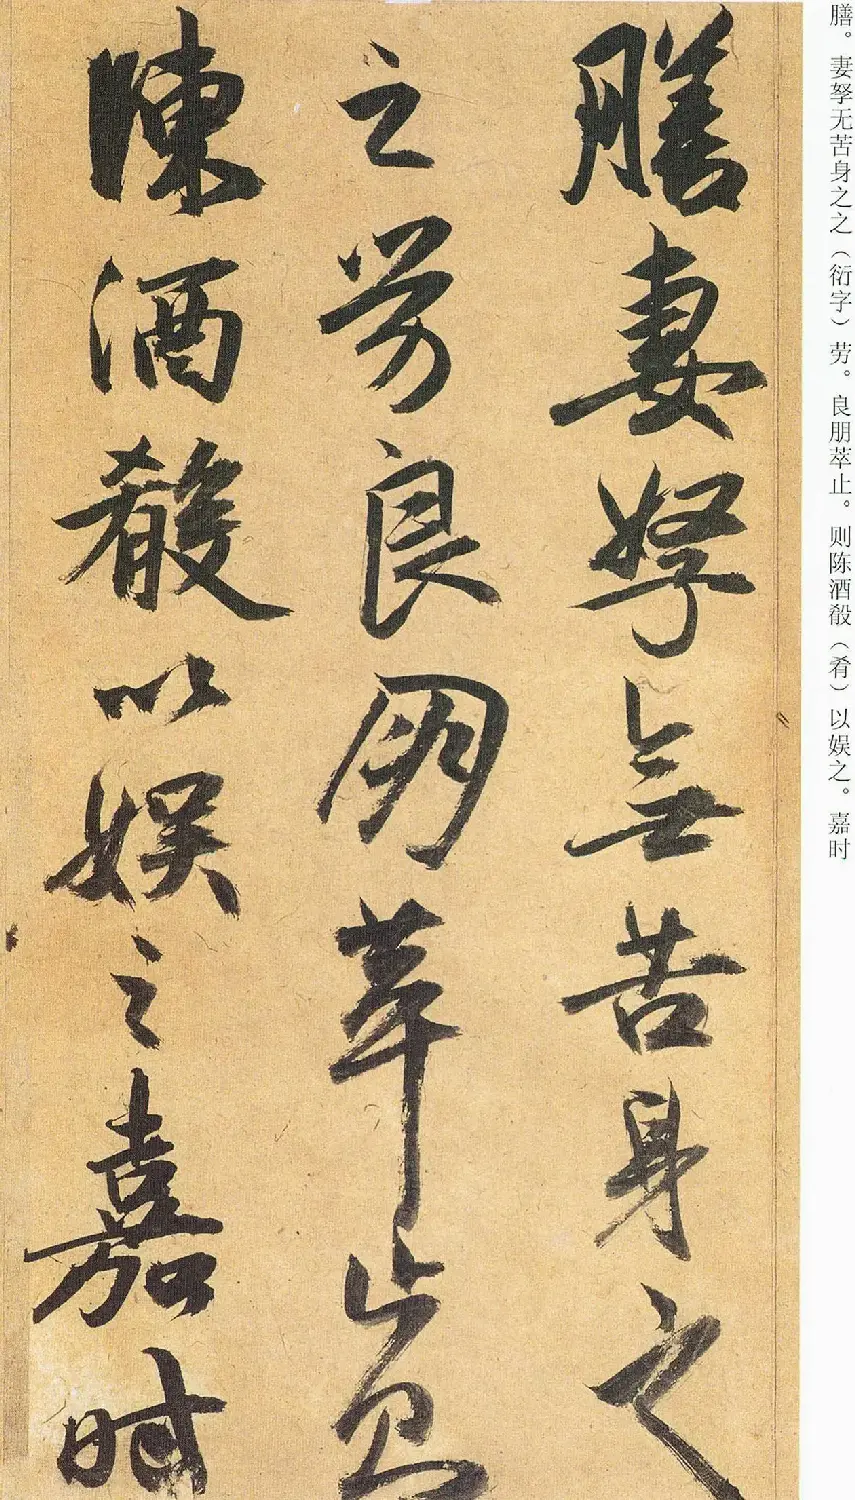 膳。妻孥无苦身之之（衍字）劳。良朋萃止。则陈酒殽（肴）以娱之。嘉时
膳妻孥無苦身之
之勞良朋萃止則
陳酒殽以娛之嘉時